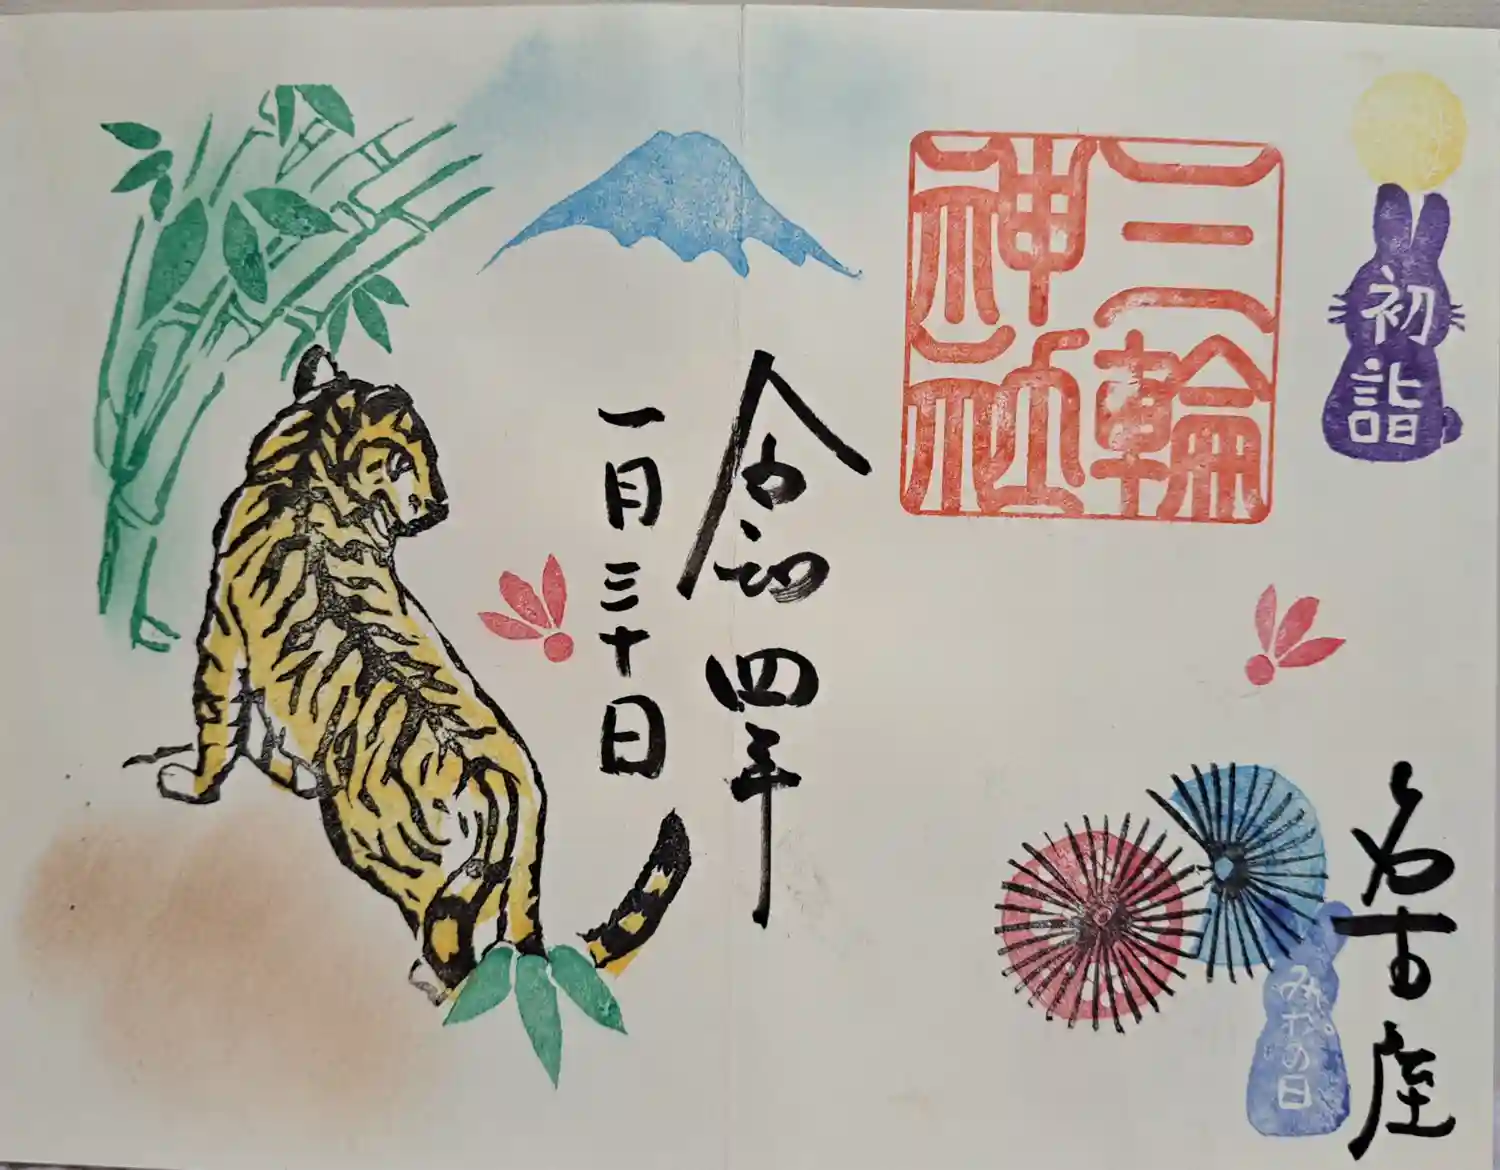 初詣
名古屋
三輪
神社
令和四年
一月三十日